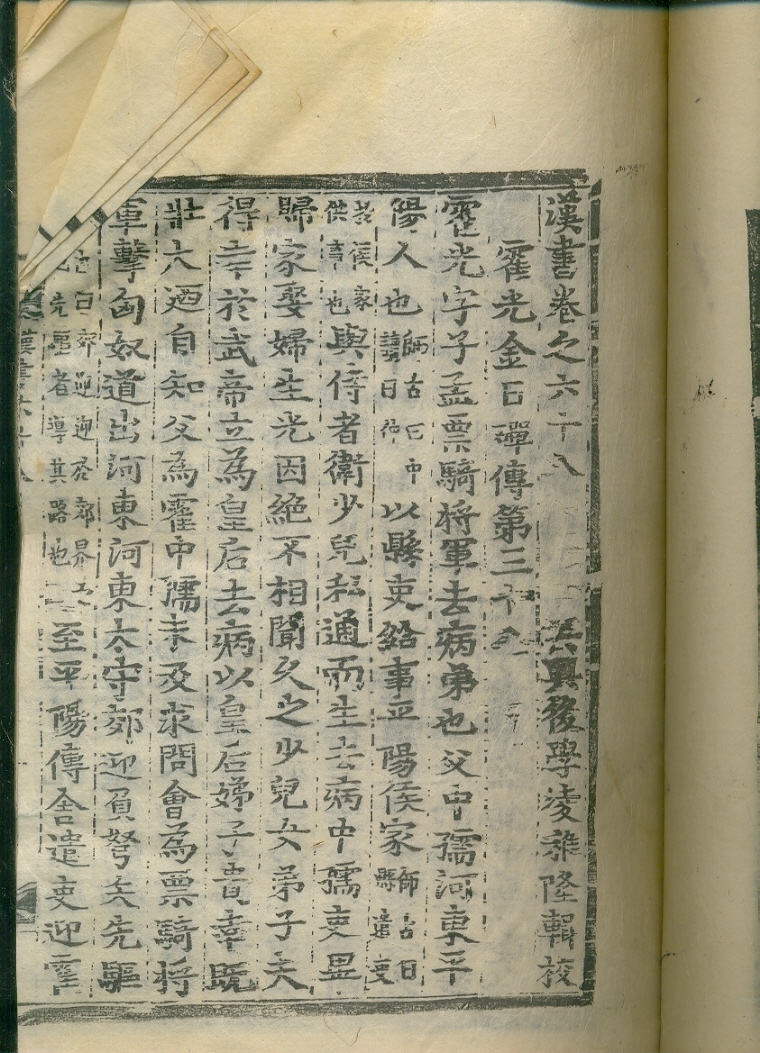 漢書卷之六十八 吳興後學凌稚隆輯校
霍光金日磾傳第三十八
霍光字子孟票騎將軍去病弟也父中孺河東平
陽人也師古曰中讀曰仲以縣吏給事平陽侯家師古曰縣遣吏
於侯家供事也與侍者衛少兒私通而生去病中孺吏畢
歸家娶婦生光因絕不相聞久之少兒女弟子夫
得幸於武帝立為皇后去病以皇后姊子貴幸既
壯大迺自知父為霍中孺未及求問會為票騎將
軍擊匈奴道出河東河東太守郊迎負弩矢先驅
古曰郊迎迎於郊界先驅者導其路也至平陽傳舍遣吏迎霍